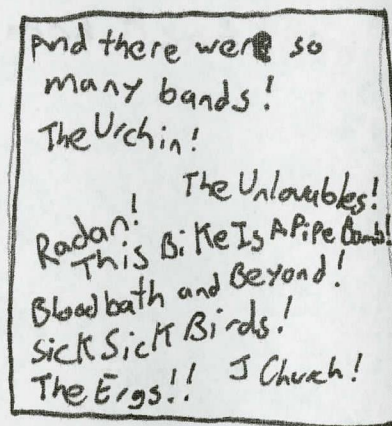 And there were so
many bands!
The Urchin!
The Unlovables!
Radan!
This Bike Is A Pipe Bomb!
Bloodbath and Beyond!
Sick Sick Birds!
The Ergs!!
J Church!